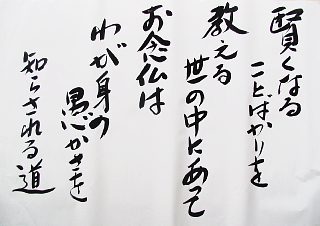 賢くなる
ことばかりを
教える
世の中にあって
お念仏は
わが身の
愚かさを
知らされる道